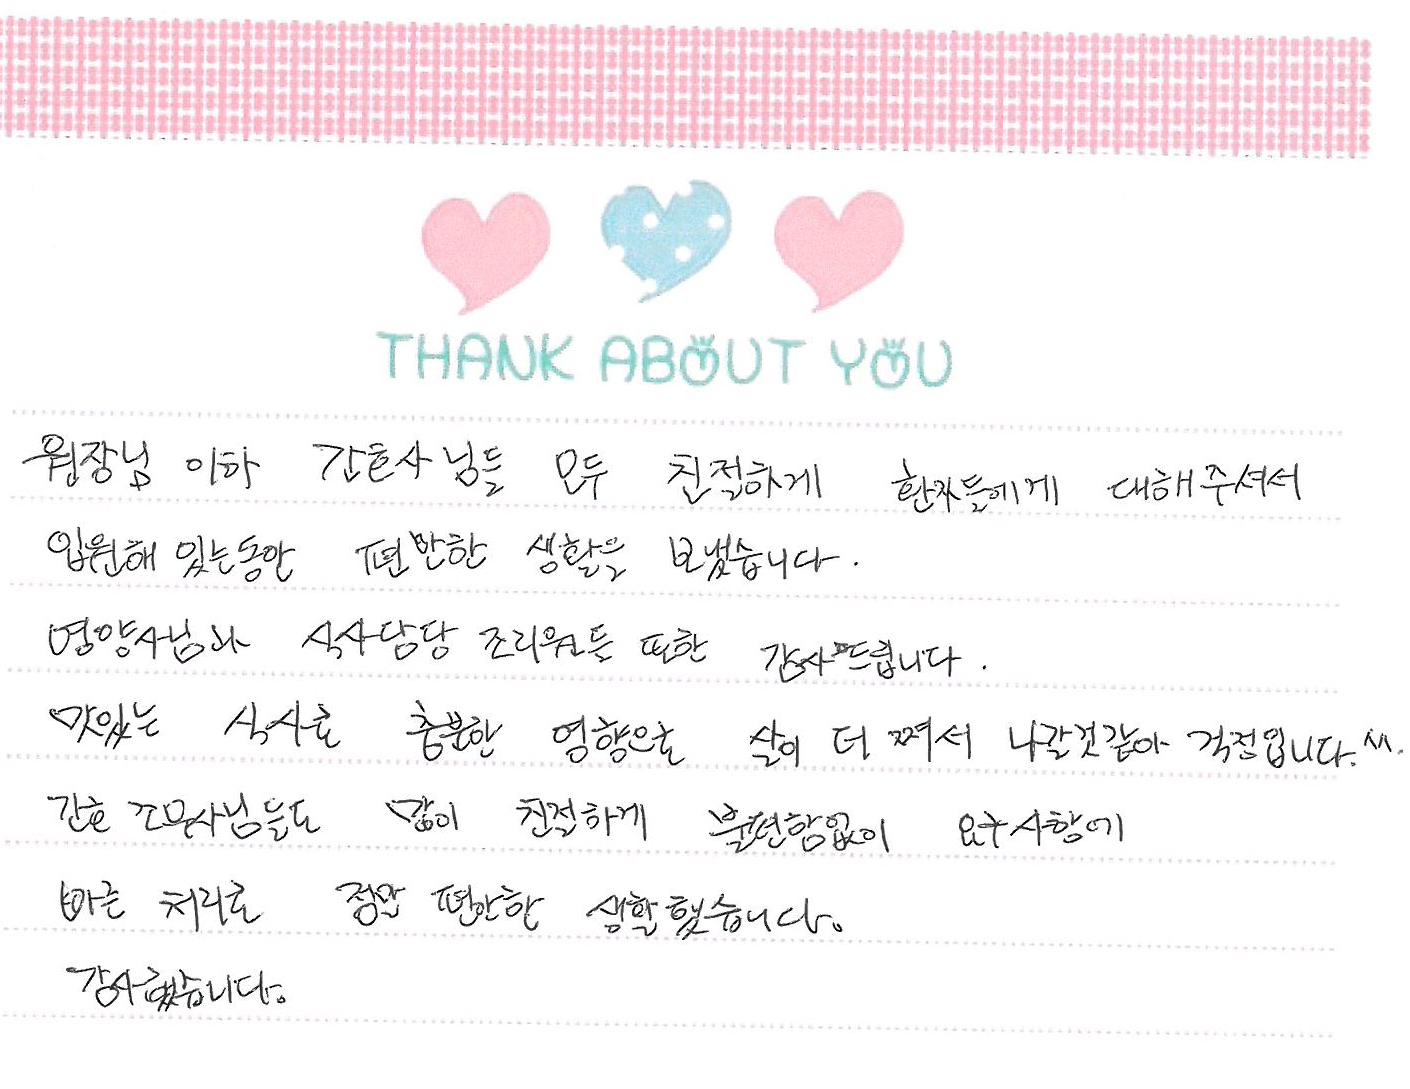 THANK ABOUT YOU
원장님 이하 간호사님들 모두 친절하게 환자들에게 대해주셔서
입원해 있는동안 편안한 생활을 보냈습니다.
영양사님과 식사담당 조리원들 또한 감사드립니다.
맛있는 식사로 충분한 영향으로 살이 더 쪄서 나갈것같아 걱정입니다.^^.
간호 조무사님들도 많이 친절하게 불편함없이 요구사항에
빠른 처리로 정말 편안한 생활했습니다.
감사했습니다.